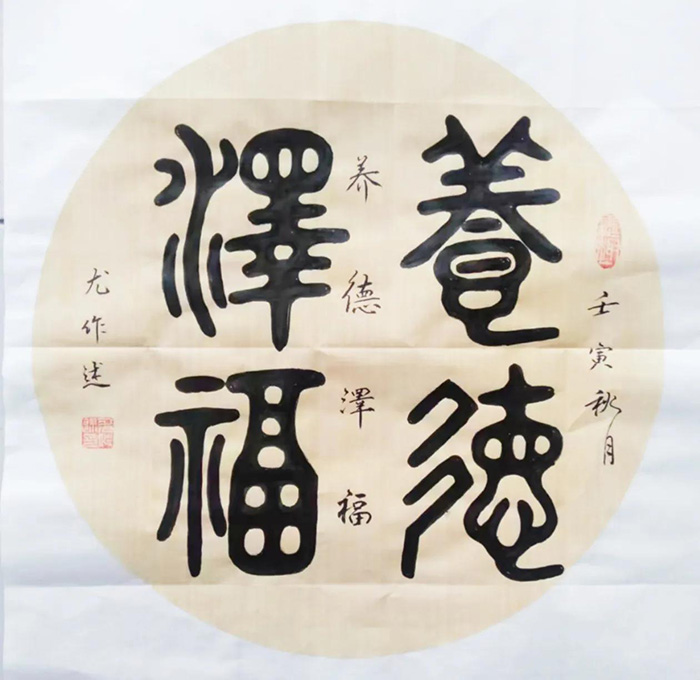 壬寅秋月
養德
养德澤福
澤福
尤作述